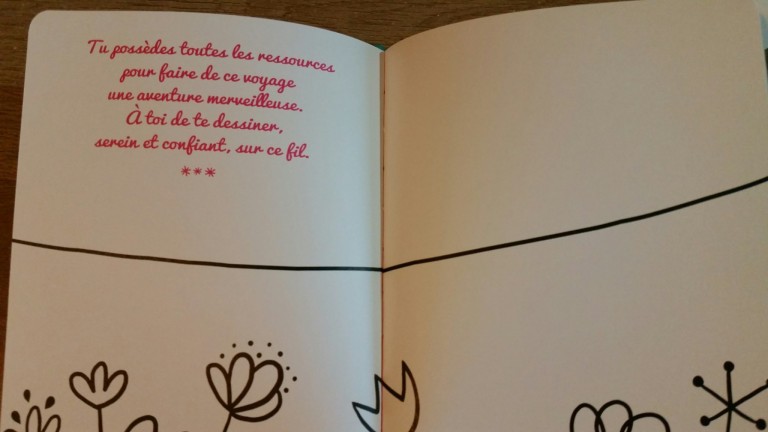 Tu possèdes toutes les ressources
pour faire de ce voyage
une aventure merveilleuse.
À toi de te dessiner,
serein et confiant, sur ce fil.
***